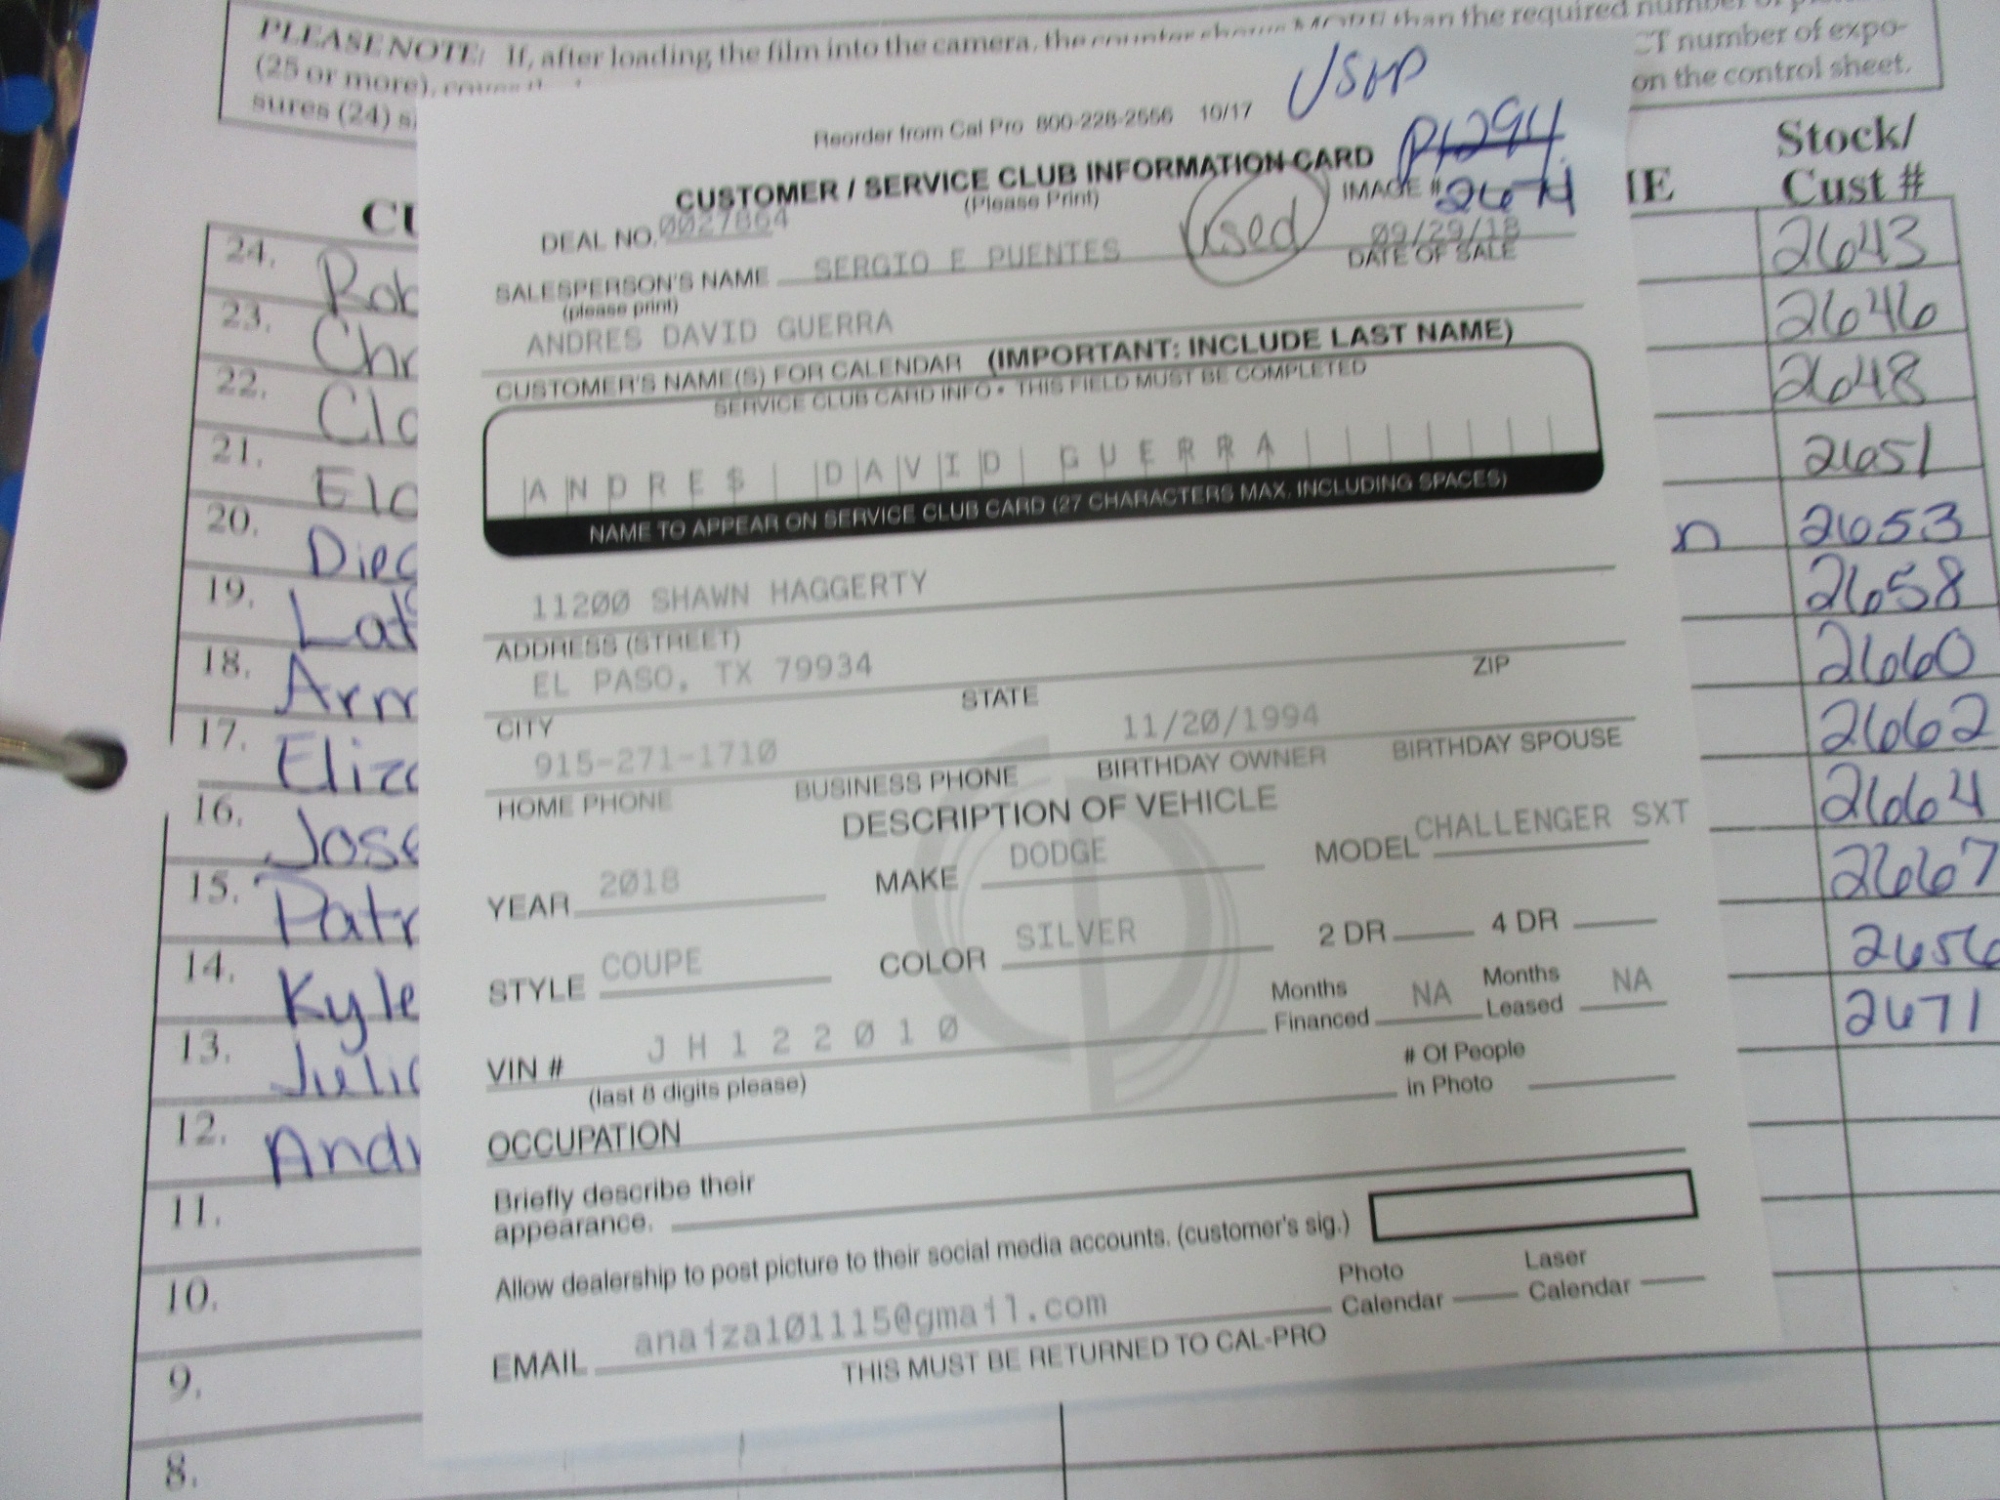 PLEASE NOTE: If, after loading the film into the camera, the counter shows MORE than the required number of
(25 or more), CT number of expo-
sures (24) on the control sheet.
USHP
Reorder from Cal Pro 800-228-2556 10/17
P1294
CUSTOMER / SERVICE CLUB INFORMATION CARD
(Please Print)
IMAGE # 2674
DEAL NO. 0027864
Used
09/29/18
DATE OF SALE
SALESPERSON'S NAME SERGIO E PUENTES
(please print)
ANDRES DAVID GUERRA
CUSTOMER'S NAME(S) FOR CALENDAR (IMPORTANT: INCLUDE LAST NAME)
SERVICE CLUB CARD INFO • THIS FIELD MUST BE COMPLETED
ANDRES DAVID GUERRA
NAME TO APPEAR ON SERVICE CLUB CARD (27 CHARACTERS MAX. INCLUDING SPACES)
11200 SHAWN HAGGERTY
ADDRESS (STREET)
EL PASO, TX 79934
CITY STATE ZIP
915-271-1710 11/20/1994
HOME PHONE BUSINESS PHONE BIRTHDAY OWNER BIRTHDAY SPOUSE
DESCRIPTION OF VEHICLE
YEAR 2018 MAKE DODGE MODEL CHALLENGER SXT
STYLE COUPE COLOR SILVER 2 DR 4 DR
Months Financed NA Months Leased NA
VIN # JH122010
(last 8 digits please)
# Of People
in Photo
OCCUPATION
Briefly describe their
appearance.
Allow dealership to post picture to their social media accounts. (customer's sig.)
Photo Calendar Laser Calendar
EMAIL anaiza101115@gmail.com
THIS MUST BE RETURNED TO CAL-PRO
Stock/
Cust #
24. Rob 2643
23. Chr 2646
22. Cla 2648
21. 2651
20. Dieg 2653
19. Lat 2658
18. Arm 2660
17. Eliza 2662
16. Jose 2664
15. Patr 2667
14. Kyle 2656
13. Julia 2671
12. Andr
11.
10.
9.
8.